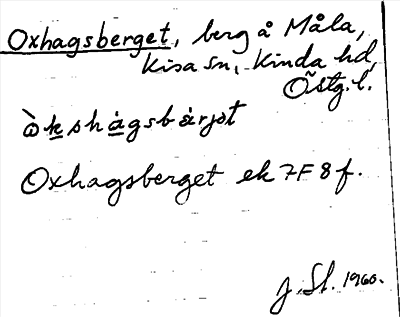 Oxhagsberget, berg å Måla,
Kisa sn, Kinda hd,
Östg. l.
òkshàgsbàrjət
Oxhagsberget ek 7F8f.
J. St. 1960.